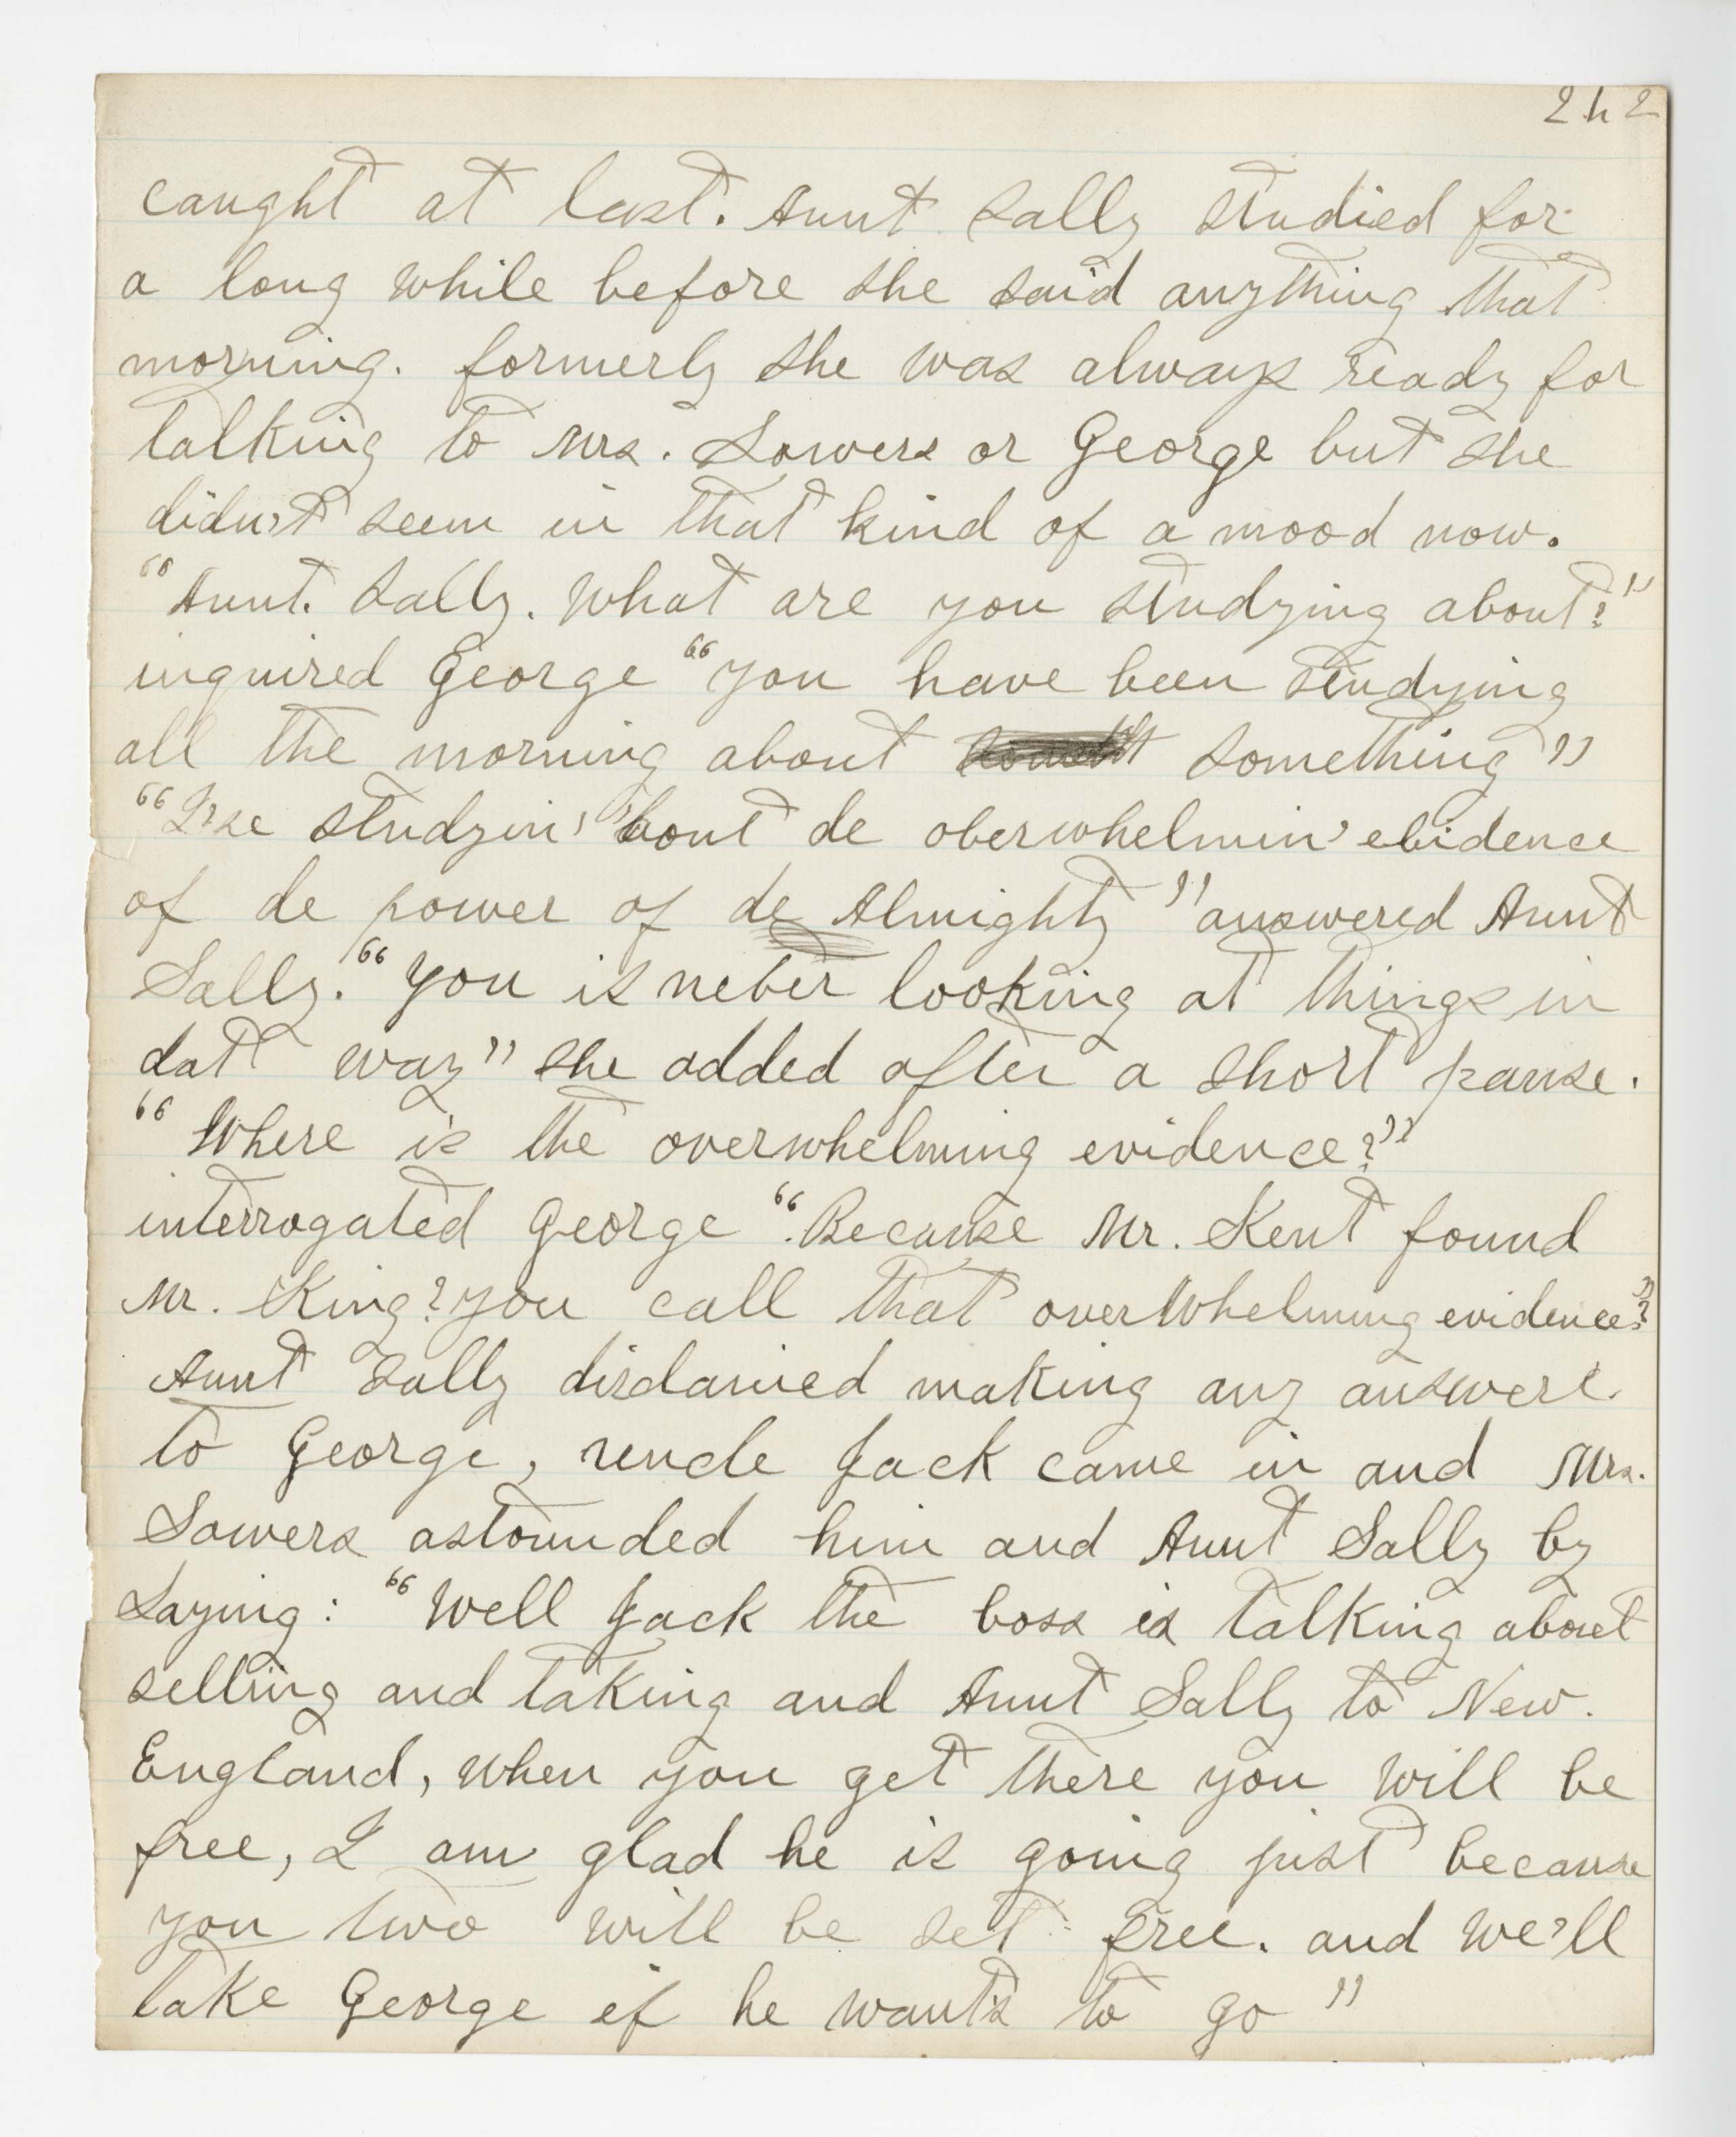 242
caught at last. Aunt Sally studied for
a long while before she said anything that
morning. formerly she was always ready for
talking to Mrs. Sowers or George but she
didn't seem in that kind of a mood now.
"Aunt. Sally. What are you studying about?"
inquired George "you have been studying
all the morning about something"
"I'se studyin' 'bout de oberwhelmin' ebidence
of de power of de Almighty" answered Aunt
Sally. "you is neber looking at things in
dat way" she added after a short pause.
"Where is the overwhelming evidence?"
interrogated George "Because Mr. Kent found
Mr. King? you call that overwhelming evidence?"
Aunt Sally disdained making any answere
to George, uncle Jack came in and Mrs.
Sowers astounded him and Aunt Sally by
saying: "Well Jack the boss is talking about
selling and taking and Aunt Sally to New.
England, when you get there you will be
free, I am glad he is going just because
you two will be set free. and we'll
take George if he wants to go"